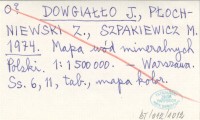 DOWGIAŁŁO J., PŁOCH-
NIEWSKI Z., SZPAKIEWICZ M.
1974. Mapa wód mineralnych
Polski. 1:1 500 000. – Warszawa.
Ss. 6, 11, tab., mapa kolor.